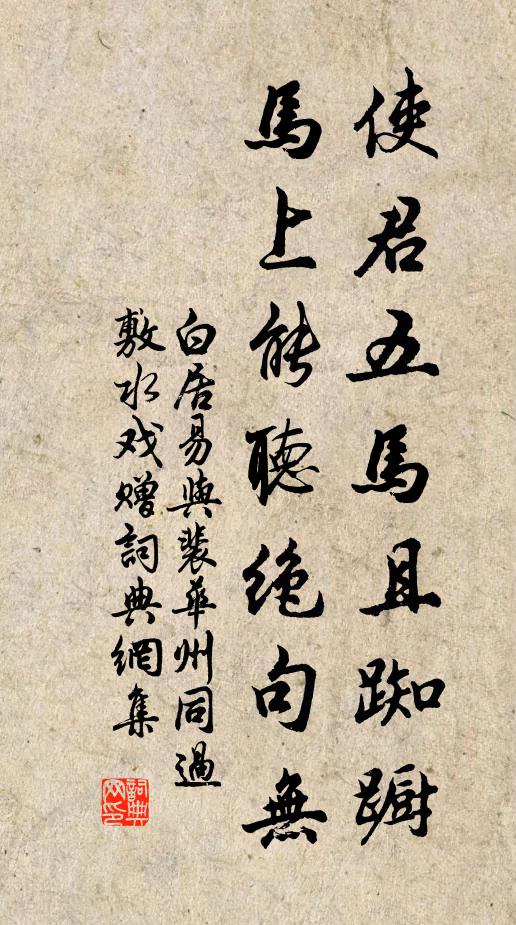 使君五馬且踟躕
馬上能聽絶句無
白居易與裴華州同過
敷水戏贈詞典網集
詞典
网印